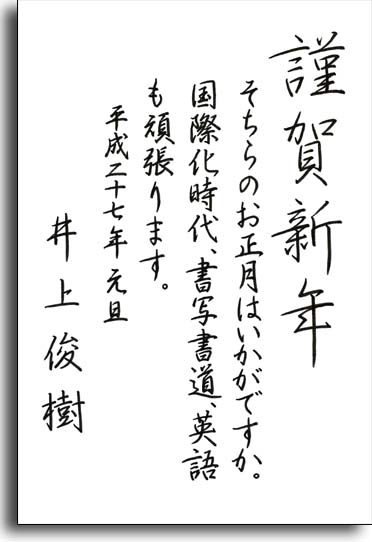 謹賀新年
そちらのお正月はいかがですか。
国際化時代、書写書道、英語
も頑張ります。
平成二十七年元旦
井上俊樹